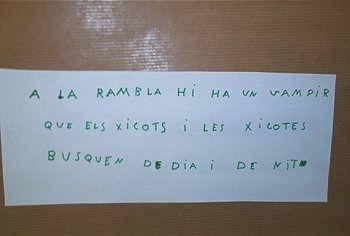 A LA RAMBLA HI HA UN VAMPIR
QUE ELS XICOTS I LES XICOTES
BUSQUEN DE DIA I DE NIT